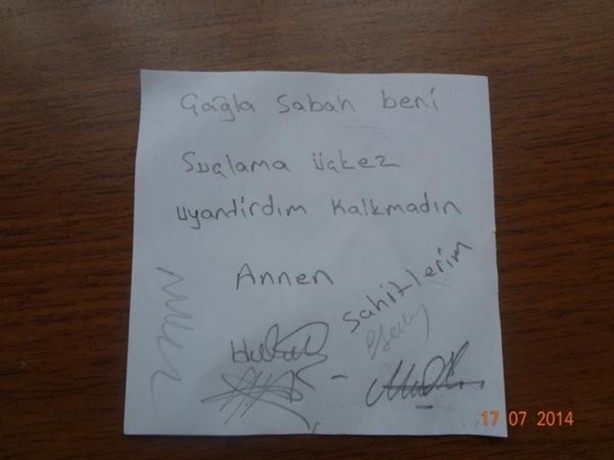 Çağla Sabah beni
Suçlama üçkez
uyandirdım Kalkmadın
Annen
Sahitlerim
17 07 2014